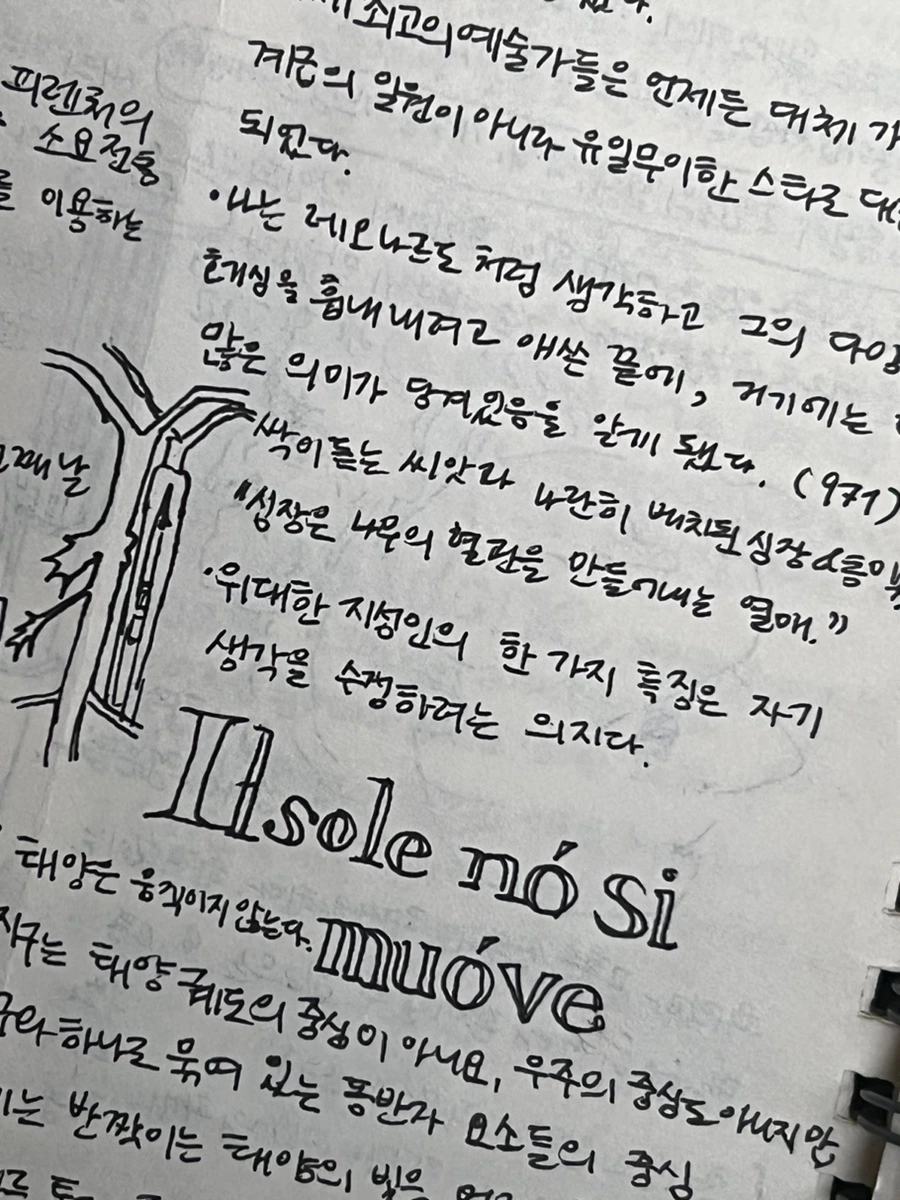 최고의 예술가들은 언제든 대체 가
계급의 일원이 아니라 유일무이한 스타로 대
되었다.
피렌체의
소요전통
를 이용하는
·나는 레오나르도 처럼 생각하고 그의
호기심을 흉내내려고 애쓴 끝에, 거기에는
많은 의미가 담겨있음을 알게 됐다. (971)
싹이 트는 씨앗과 나란히 배치된 심장스름
"심장은 나무의 혈관을 만들어내는 열매."
·위대한 지성인의 한 가지 특징은 자기
생각을 수정하려는 의지다.
Il sole nó si
muóve
태양은 움직이지 않는다.
지구는 태양궤도의 중심이 아니요, 우주의 중심도 아니지만
하나로 묶여 있는 동반자 요소들의 중심
는 반짝이는 태양의 빛을